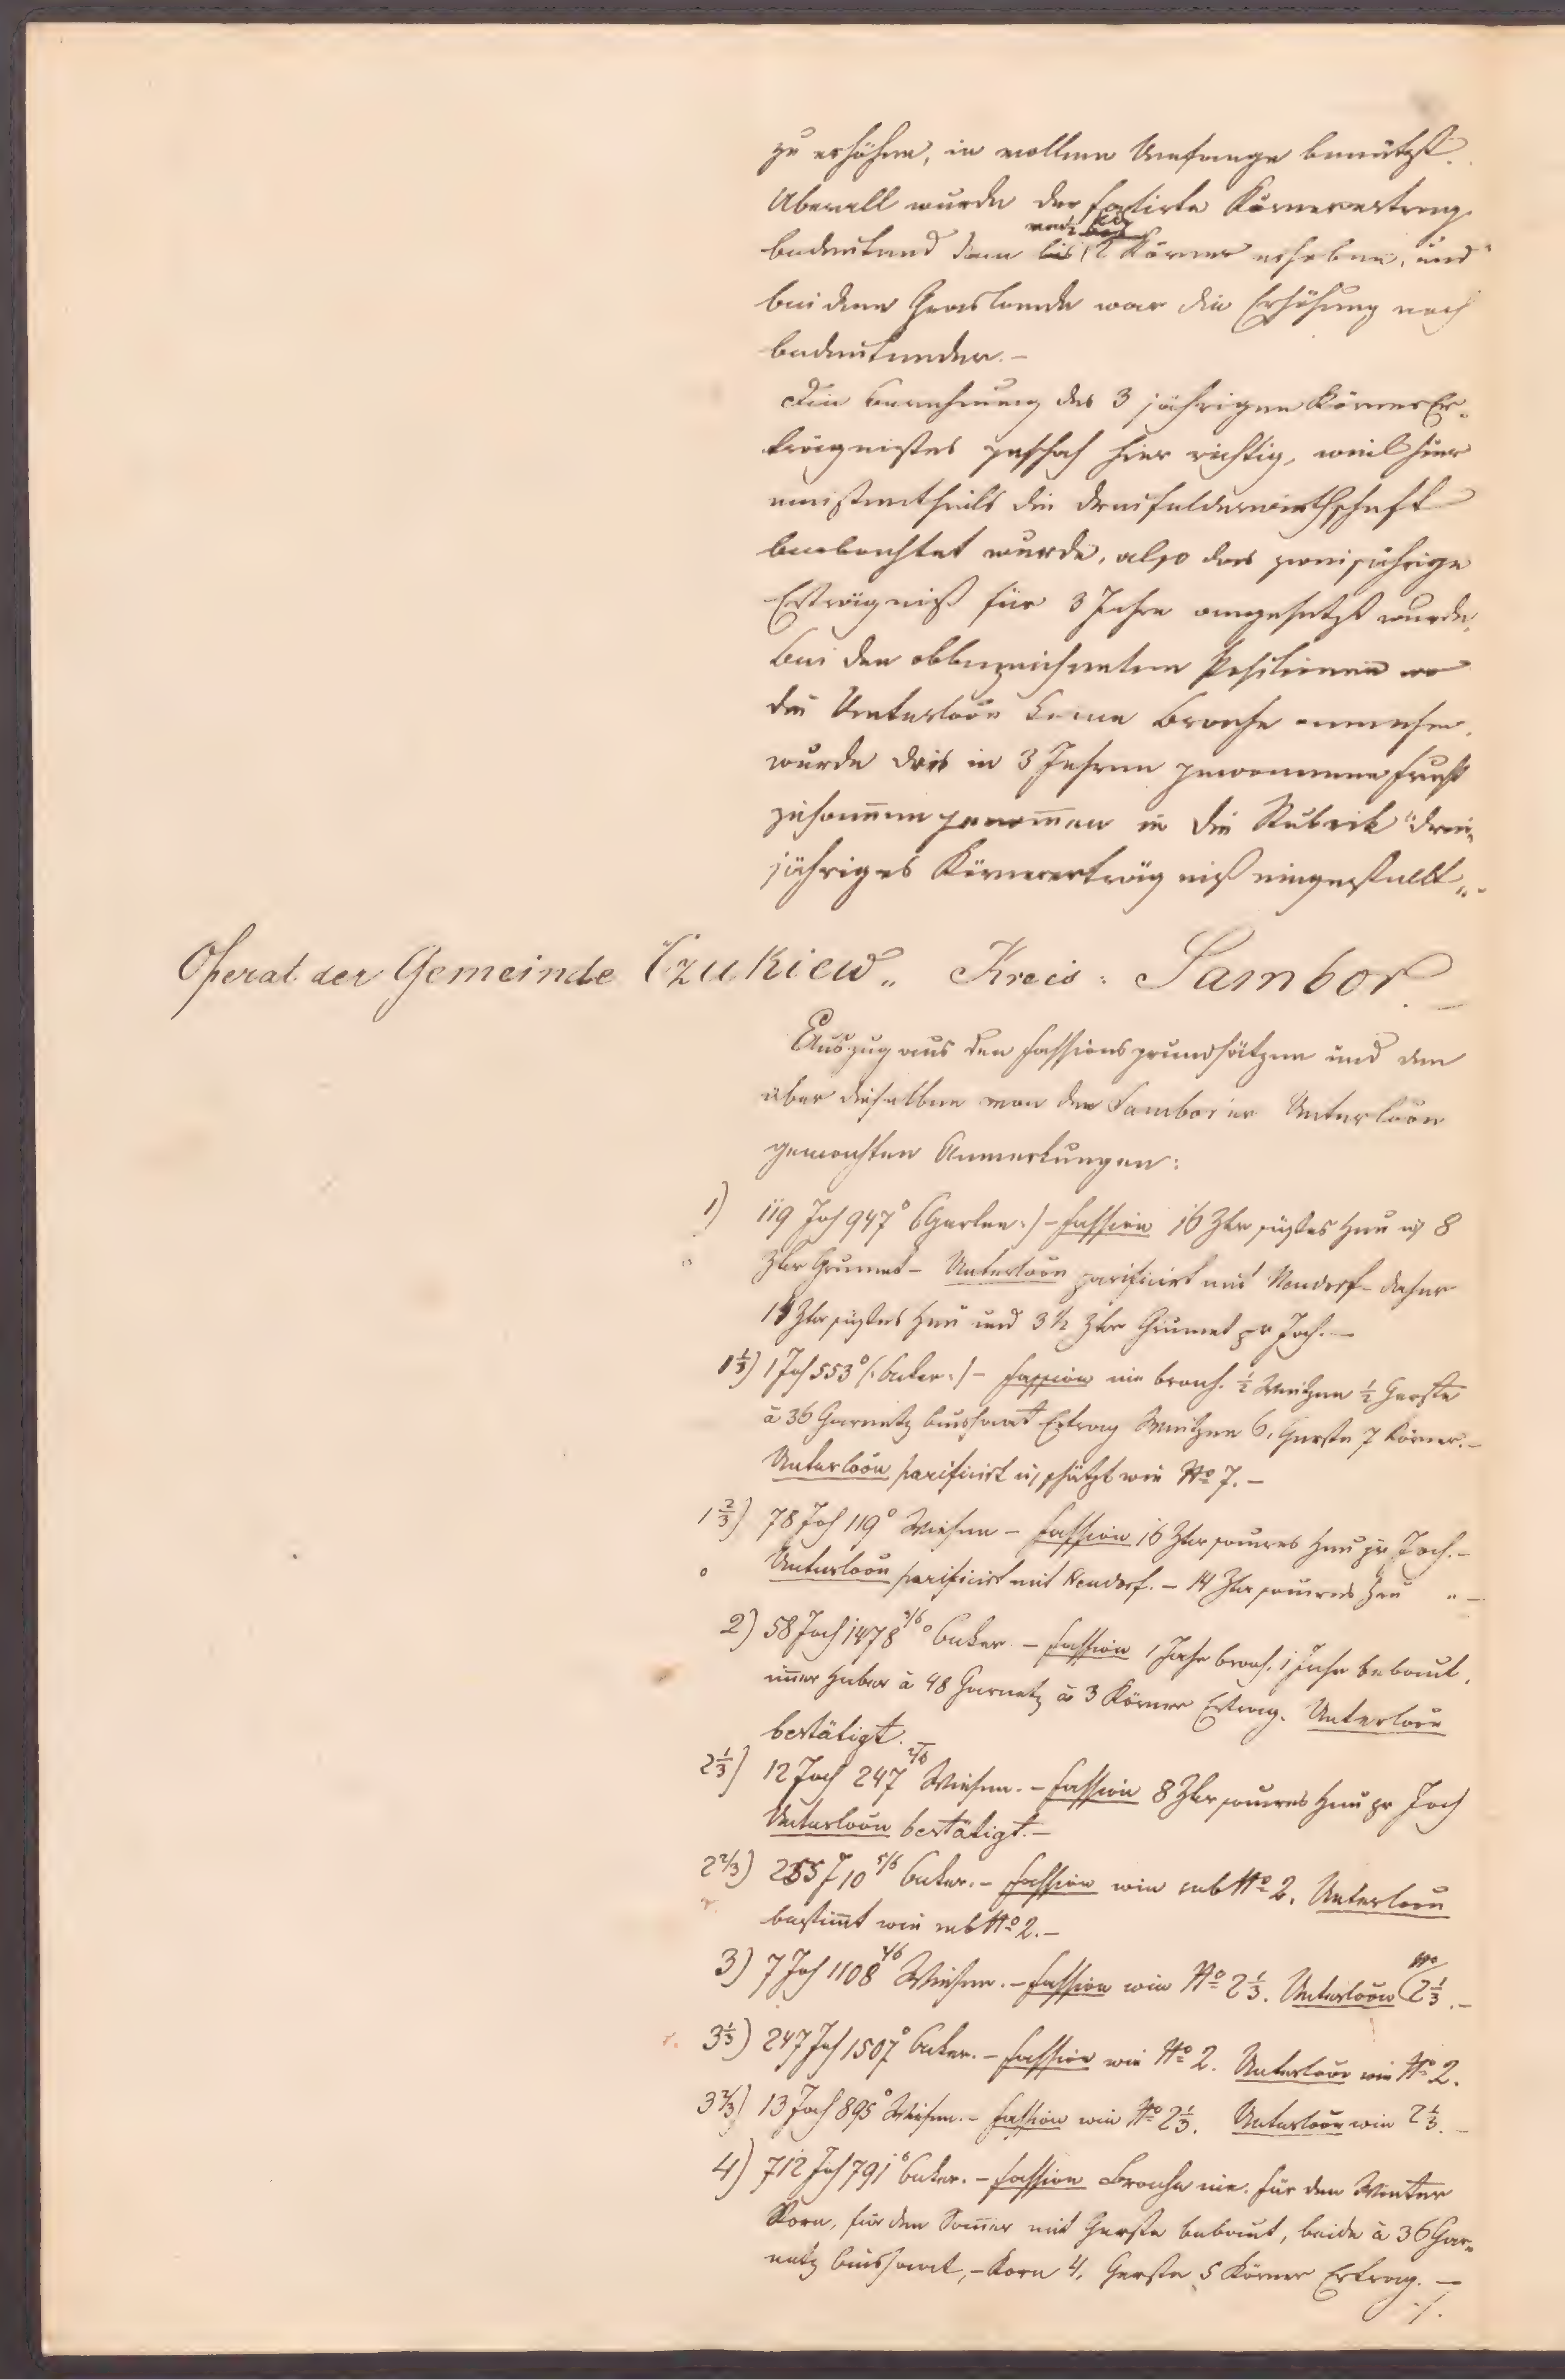 zu erhöhen, in vollem Umfange benützt.
Überall wurde der fatirte Körnerertrag
bedeutend bis 12 Körner erhoben, und
bei dem Graslande war die Erhöhung noch
bedeutender. –
Die Berechnung des 3 jährigen KörnerEr-
trägnißes geschah hier richtig, weil hier
meistentheils die Dreifelderwirthschaft
beobachtet wurde, also das zweijährige
Erträgniß für 3 Jahre angesetzt wurde.
Bei den obbezeichneten Positionen wo
die Unterloön keine Brache annehmen,
wurde das in 3 Jahren gewonnene Frucht
zusammen genommen in die Rubrik "drei-
jähriges Körnererträgniß eingestellt". –
Operat der Gemeinde "Czukiew" Kreis: Sambor. –
Auszug aus den Fassionsgrundsätzen und den
über dieselben von den Samborer Unterloön
gemachten Anmerkungen:
1) 119 Joch 947° (:Garten:) – Fassion 16 Ztr süßes Heu u 8
Ztr Grumet – Unterloön parificirt mit Wendorf – daher
14 Ztr süßes Heu und 3 ½ Ztr Grumet pr Joch. –
1⅓) 1 Joch 553° (:Acker:) – Fassion nie brach. ½ Weitzen ½ Gerste
à 36 Garnetz Aussaat Ertrag Weitzen 6, Gerste 7 Körner. –
Unterloön parificirt u. schätzt wie No 7. –
1⅔) 78 Joch 119° Wiesen – Fassion 16 Ztr saures Heu pr Joch. –
Unterloön parificirt mit Wendorf. – 14 Ztr saures Heu " –
2) 58 Joch 1478 3/6° Acker. – Fassion 1 Jahr brach, 1 Jahr bebaut,
immer Haber à 48 Garnetz à 3 Körner Ertrag. Unterloön
bestätigt.
2⅓) 12 Joch 247 2/6 Wiesen. – Fassion 8 Ztr saures Heu pr Joch
Unterloön bestätigt. –
2⅔) 255 J 10 5/6 Acker. – Fassion wie sub No 2. Unterloön
bestimmt wie sub No 2. –
3) 7 Joch 1108 4/6 Wiesen. – Fassion wie No 2⅓. Unterloön No 2⅓. –
3⅓) 247 Joch 1507° Acker. – Fassion wie No 2. Unterloön wie No 2.
3⅔) 13 Joch 895° Wiesen. – Fassion wie No 2⅓. Unterloön wie 2⅓. –
4) 712 Joch 791° Acker. – Fassion Brache nie. Für den Winter
Korn, für den Sommer mit Gerste bebaut, beide à 36 Gar-
netz Aussaat, – Korn 4, Gerste 5 Körner Ertrag. –
./.